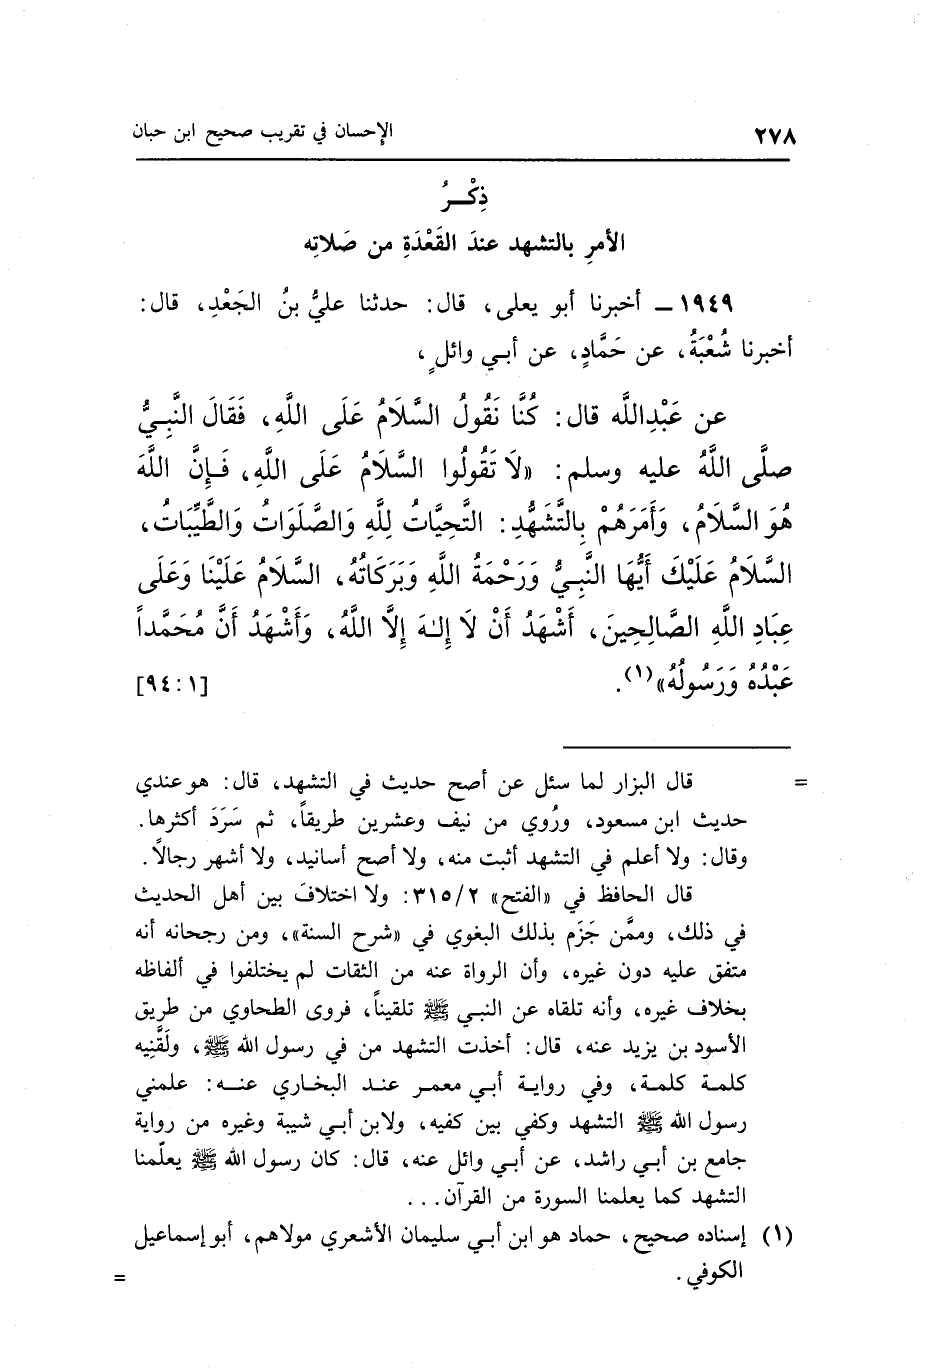 ٢٧٨ الإحسان في تقريب صحيح ابن حبان
ذِكْـرُ
الأمرِ بالتشهد عندَ القَعْدَةِ من صَلاتِه
١٩٤٩ ـ أخبرنا أبو يعلى، قال: حدثنا عليُّ بنُ الجَعْدِ، قال:
أخبرنا شُعْبَةُ، عن حَمَّادٍ، عن أبي وائلٍ،
عن عَبْدِاللَّه قال: كُنَّا نَقُولُ السَّلَامُ عَلَى اللَّهِ، فَقَالَ النَّبِيُّ
صلَّى اللَّهُ عليه وسلم: «لَا تَقُولُوا السَّلَامُ عَلَى اللَّهِ، فَإِنَّ اللَّهَ
هُوَ السَّلَامُ، وَأَمَرَهُمْ بِالتَّشَهُّدِ: التَّحِيَّاتُ لِلَّهِ وَالصَّلَوَاتُ وَالطَّيِّبَاتُ،
السَّلَامُ عَلَيْكَ أَيُّهَا النَّبِيُّ وَرَحْمَةُ اللَّهِ وَبَرَكَاتُهُ، السَّلَامُ عَلَيْنَا وَعَلَى
عِبَادِ اللَّهِ الصَّالِحِينَ، أَشْهَدُ أَنْ لَا إِلٰهَ إِلَّا اللَّهُ، وَأَشْهَدُ أَنَّ مُحَمَّداً
عَبْدُهُ وَرَسُولُهُ»(١). [٩٤:١]
= قال البزار لما سئل عن أصح حديث في التشهد، قال: هو عندي
حديث ابن مسعود، ورُوي من نيف وعشرين طريقاً، ثم سَرَدَ أكثرها.
وقال: ولا أعلم في التشهد أثبت منه، ولا أصح أسانيد، ولا أشهر رجالاً.
قال الحافظ في «الفتح» ٣١٥/٢: ولا اختلافَ بين أهل الحديث
في ذلك، وممَّن جَزَم بذلك البغوي في «شرح السنة»، ومن رجحانه أنه
متفق عليه دون غيره، وأن الرواة عنه من الثقات لم يختلفوا في ألفاظه
بخلاف غيره، وأنه تلقاه عن النبي ﷺ تلقيناً، فروى الطحاوي من طريق
الأسود بن يزيد عنه، قال: أخذت التشهد من في رسول الله ﷺ، ولَقَّنِيه
كلمة كلمة، وفي رواية أبي معمر عند البخاري عنه: علمني
رسول الله ﷺ التشهد وكفي بين كفيه، ولابن أبي شيبة وغيره من رواية
جامع بن أبي راشد، عن أبي وائل عنه، قال: كان رسول الله ﷺ يعلّمنا
التشهد كما يعلمنا السورة من القرآن...
(١) إسناده صحيح، حماد هو ابن أبي سليمان الأشعري مولاهم، أبو إسماعيل
الكوفي. =